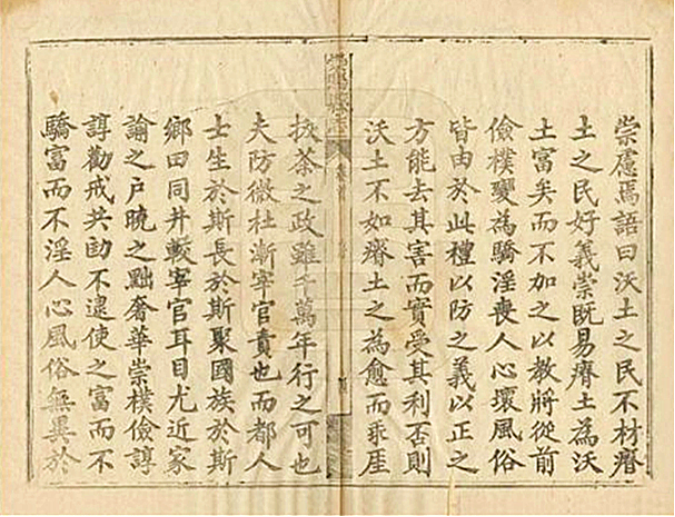 崇慮焉語曰沃土之民不材瘠
土之民好義崇既易瘠土為沃
土富矣而不加之以教將從前
儉樸變為驕淫喪人心壞風俗
皆由於此禮以防之義以正之
方能去其害而實受其利否則
沃土不如瘠土之為愈而乖崖
拔茶之政雖千萬年行之可也
夫防微杜漸宰官責也而都人
士生於斯長於斯聚國族於斯
鄉田同井較宰官耳目尤近家
諭之戶曉之黜奢華崇樸儉諄
諄勸戒共勖不逮使之富而不
驕富而不淫人心風俗無異於